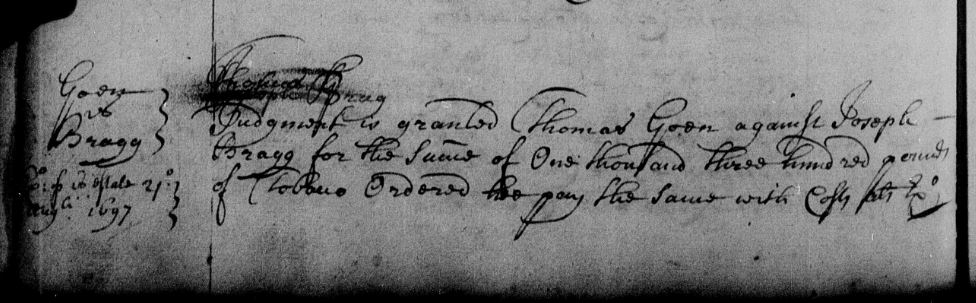 Goen
vs
Bragg
estate 21o
1697
Joseph Brag
Judgment is granted Thomas Goen against Joseph
Bragg for the sume of One thousand three hundred pounds
of Tobbco Ordered hee pay the same with Costs als Exo